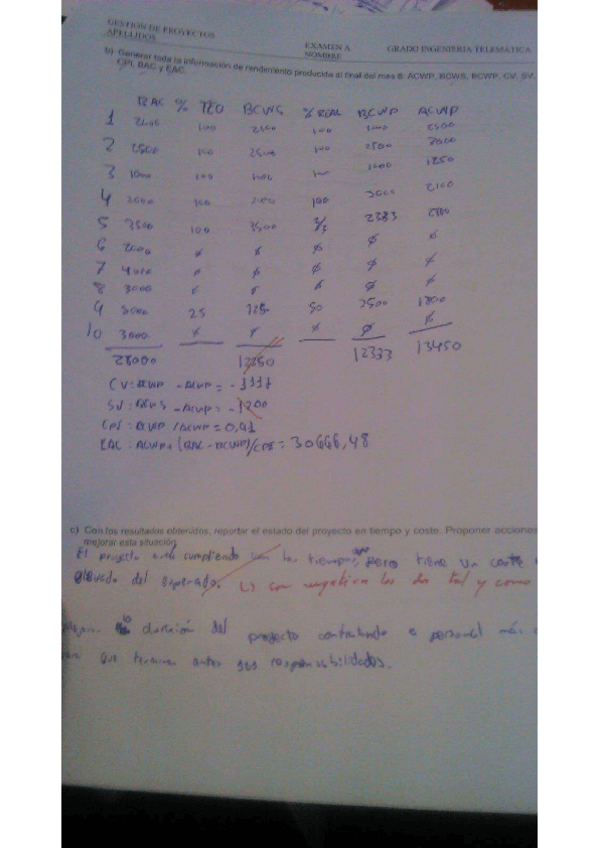 GESTION DE PROYECTOS
APELLIDOS
EXAMEN A
NOMBRE
GRADO INGENIERIA TELEMATICA
b) Generar toda la información de rendimiento producida al final del mes 8: ACWP, BCWS, BCWP, CV, SV,
CPI, BAC y EAC.
BAC % TEO BCWS % REAL BCWP ACWP
1 100 100 2500
2 2500 100 2500 100 2500 3000
3 1000 100 1000 1250
4 100 100 3000 2100
5 3500 100 3500 2/3 2333
6 2000 ø ø ø ø ø
7 4000 ø ø ø ø ø
8 3000 ø ø ø ø ø
9 5000 25 1250 50 2500 1800
10 3000 ø ø ø ø ø
28000 12250 12333 13450
CV: BCWP - ACWP = -1117
SV: BCWS - ACWP = -1200
CPI: BCWP / ACWP = 0,91
EAC: ACWP + (BAC - BCWP)/CPI = 30666,48
c) Con los resultados obtenidos, reportar el estado del proyecto en tiempo y coste. Proponer acciones
mejorar esta situación.
El proyecto está cumpliendo con los tiempos, pero tiene un coste
elevado del esperado. son negativos los dos tal y como
duración del proyecto contratando a personal más
para que terminen antes sus responsabilidades.